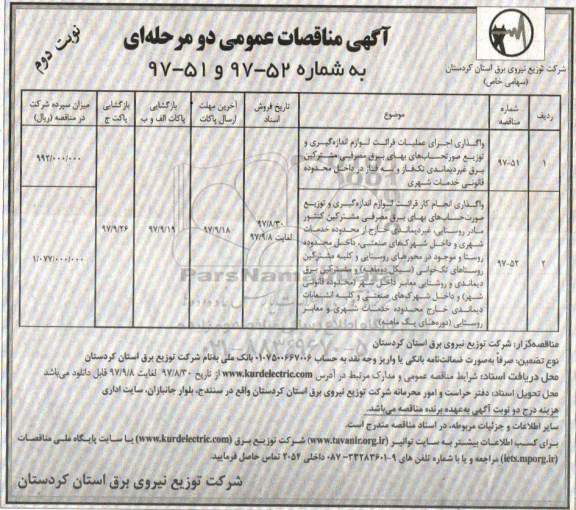 آگهی مناقصات عمومی دو مرحله‌ای
به شماره ۵۲-۹۷ و ۵۱-۹۷
نوبت دوم
شرکت توزیع نیروی برق استان کردستان
(سهامی خاص)
ردیف
شماره مناقصه
موضوع
تاریخ فروش اسناد
آخرین مهلت ارسال پاکات
بازگشایی پاکات الف و ب
بازگشایی پاکت ج
میزان سپرده شرکت در مناقصه (ریال)
۱
۹۷-۵۱
واگذاری اجرای عملیات قرائت لوازم اندازه‌گیری و
توزیع صورتحساب‌های بهای برق مصرفی مشترکین
برق غیردیماندی تکفاز و سه فاز در داخل محدوده
قانونی خدمات شهری
۹۹۲/۰۰۰/۰۰۰
۲
۹۷-۵۲
واگذاری انجام کار قرائت لوازم اندازه‌گیری و توزیع
صورت‌حساب‌های بهای برق مصرفی مشترکین کنتور
مادر روستایی، غیردیماندی خارج از محدوده خدمات
شهری و داخل شهرک‌های صنعتی، داخل محدوده
روستا و موجود در محورهای روستایی و کلیه مشترکین
روستاهای تک‌خوانی (سیکل دوماهه) و مشترکین برق
دیماندی و روشنایی معابر داخل شهر (محدوده قانونی
شهر) و داخل شهرک‌های صنعتی و کلیه انشعابات
دیماندی خارج محدوده خدمات شهری و معابر
روستایی (دوره‌های یک ماهه)
۹۷/۸/۳۰
لغایت ۹۷/۹/۸
۹۷/۹/۱۸
۹۷/۹/۱۹
۹۷/۹/۲۶
۱/۰۷۷/۰۰۰/۰۰۰
مناقصه‌گزار: شرکت توزیع نیروی برق استان کردستان
نوع تضمین: صرفاً به‌صورت ضمانت‌نامه بانکی یا واریز وجه نقد به حساب ۰۱۰۷۵۰۰۶۶۷۰۰۶ بانک ملی به‌نام شرکت توزیع برق استان کردستان
محل دریافت اسناد: شرایط مناقصه عمومی و مدارک مرتبط در آدرس www.kurdelectric.com از تاریخ ۹۷/۸/۳۰ لغایت ۹۷/۹/۸ قابل دانلود می‌باشد
محل تحویل اسناد: دفتر حراست و امور محرمانه شرکت توزیع نیروی برق استان کردستان واقع در سنندج، بلوار جانبازان، سایت اداری
هزینه درج دو نوبت آگهی به‌عهده برنده مناقصه می‌باشد.
سایر اطلاعات و جزئیات مربوطه، در اسناد مناقصه مندرج است.
برای کسب اطلاعات بیشتر به سایت توانیر (www.tavanir.org.ir) شرکت توزیع برق (www.kurdelectric.com) یا سایت پایگاه ملی مناقصات
(iets.mporg.ir) مراجعه و یا با شماره تلفن های ۹-۳۳۲۸۳۶۰۱-۰۸۷ داخلی ۲۰۵۴ تماس حاصل فرمایید.
شرکت توزیع نیروی برق استان کردستان